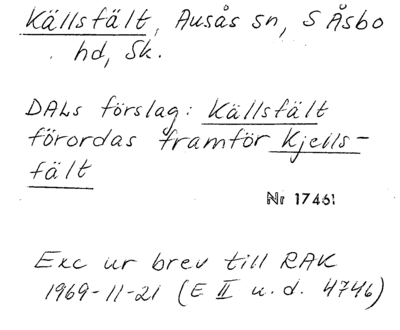 Källsfält, Ausås sn, S Åsbo
hd, Sk.
DALs förslag: Källsfält
förordas framför Kjells-
fält
Nr 17461
Exc ur brev till RAK
1969-11-21 (E II u.d. 4746)